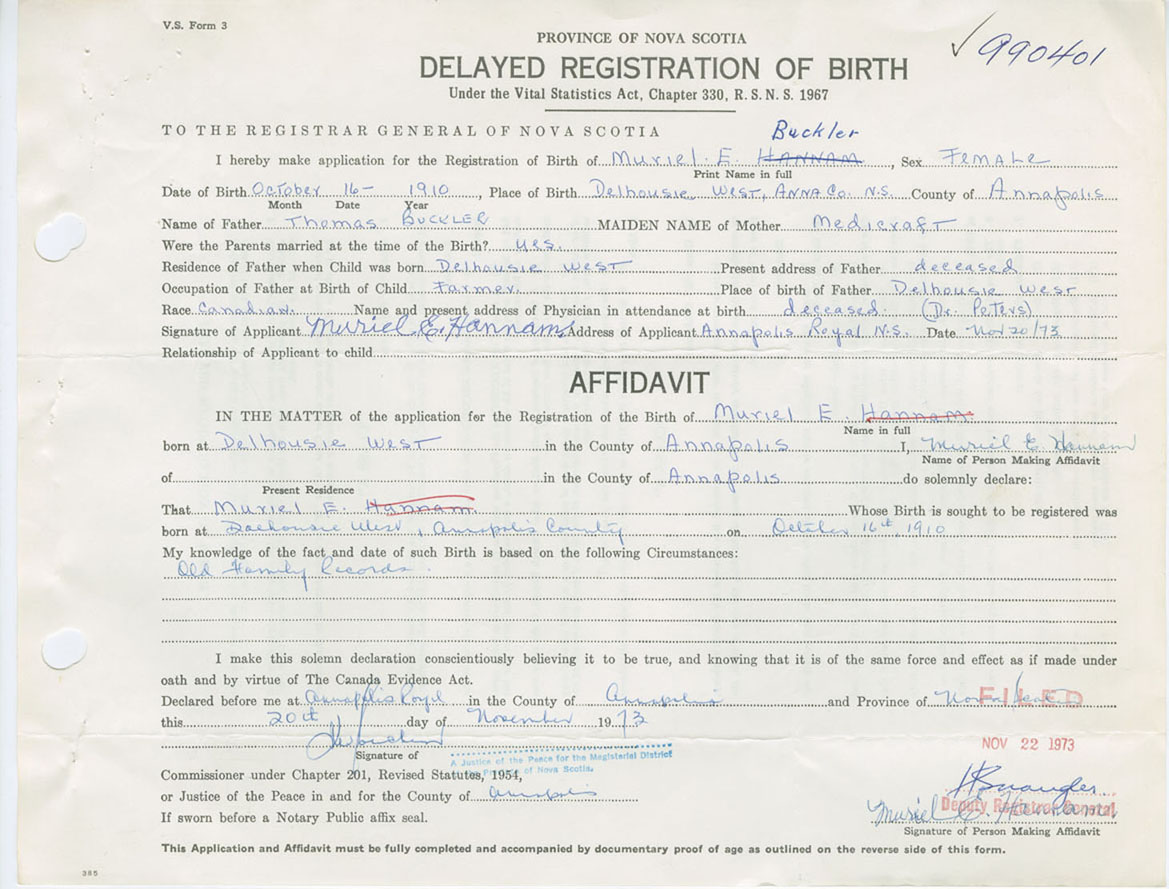 V.S. Form 3
PROVINCE OF NOVA SCOTIA
✓ 990401
DELAYED REGISTRATION OF BIRTH
Under the Vital Statistics Act, Chapter 330, R. S. N. S. 1967
TO THE REGISTRAR GENERAL OF NOVA SCOTIA Buckler
I hereby make application for the Registration of Birth of MurieL. E. HANNAM, Sex FemaLe
Print Name in full
Date of Birth October 16- 1910, Place of Birth Delhousie West, Anna Co. N.S. County of Annapolis
Month Date Year
Name of Father Thomas Buckler MAIDEN NAME of Mother Medicraft
Were the Parents married at the time of the Birth? yes.
Residence of Father when Child was born Delhousie West Present address of Father deceased
Occupation of Father at Birth of Child Farmer. Place of birth of Father Delhousie West
Race Canadian. Name and present address of Physician in attendance at birth deceased. (Dr. Peters)
Signature of Applicant Muriel E. Hannam Address of Applicant Annapolis Royal N.S. Date Nov 20/73
Relationship of Applicant to child
AFFIDAVIT
IN THE MATTER of the application for the Registration of the Birth of Muriel E. Hannam.
Name in full
born at Delhousie West in the County of Annapolis I, Muriel E. Hannam
Name of Person Making Affidavit
of in the County of Annapolis do solemnly declare:
Present Residence
That Muriel E. Hannam. Whose Birth is sought to be registered was
born at Dalhousie West, Annapolis County on October 16th, 1910
My knowledge of the fact and date of such Birth is based on the following Circumstances:
Old Family Records.
I make this solemn declaration conscientiously believing it to be true, and knowing that it is of the same force and effect as if made under
oath and by virtue of The Canada Evidence Act.
Declared before me at Annapolis Royal in the County of Annapolis and Province of Nova Scotia
FILED
this 20th day of November 1973
NOV 22 1973
Signature of
A Justice of the Peace for the Magisterial District
of Nova Scotia.
Commissioner under Chapter 201, Revised Statutes, 1954,
or Justice of the Peace in and for the County of Annapolis
Deputy Registrar General
Muriel E. Hannam
If sworn before a Notary Public affix seal.
Signature of Person Making Affidavit
This Application and Affidavit must be fully completed and accompanied by documentary proof of age as outlined on the reverse side of this form.
385